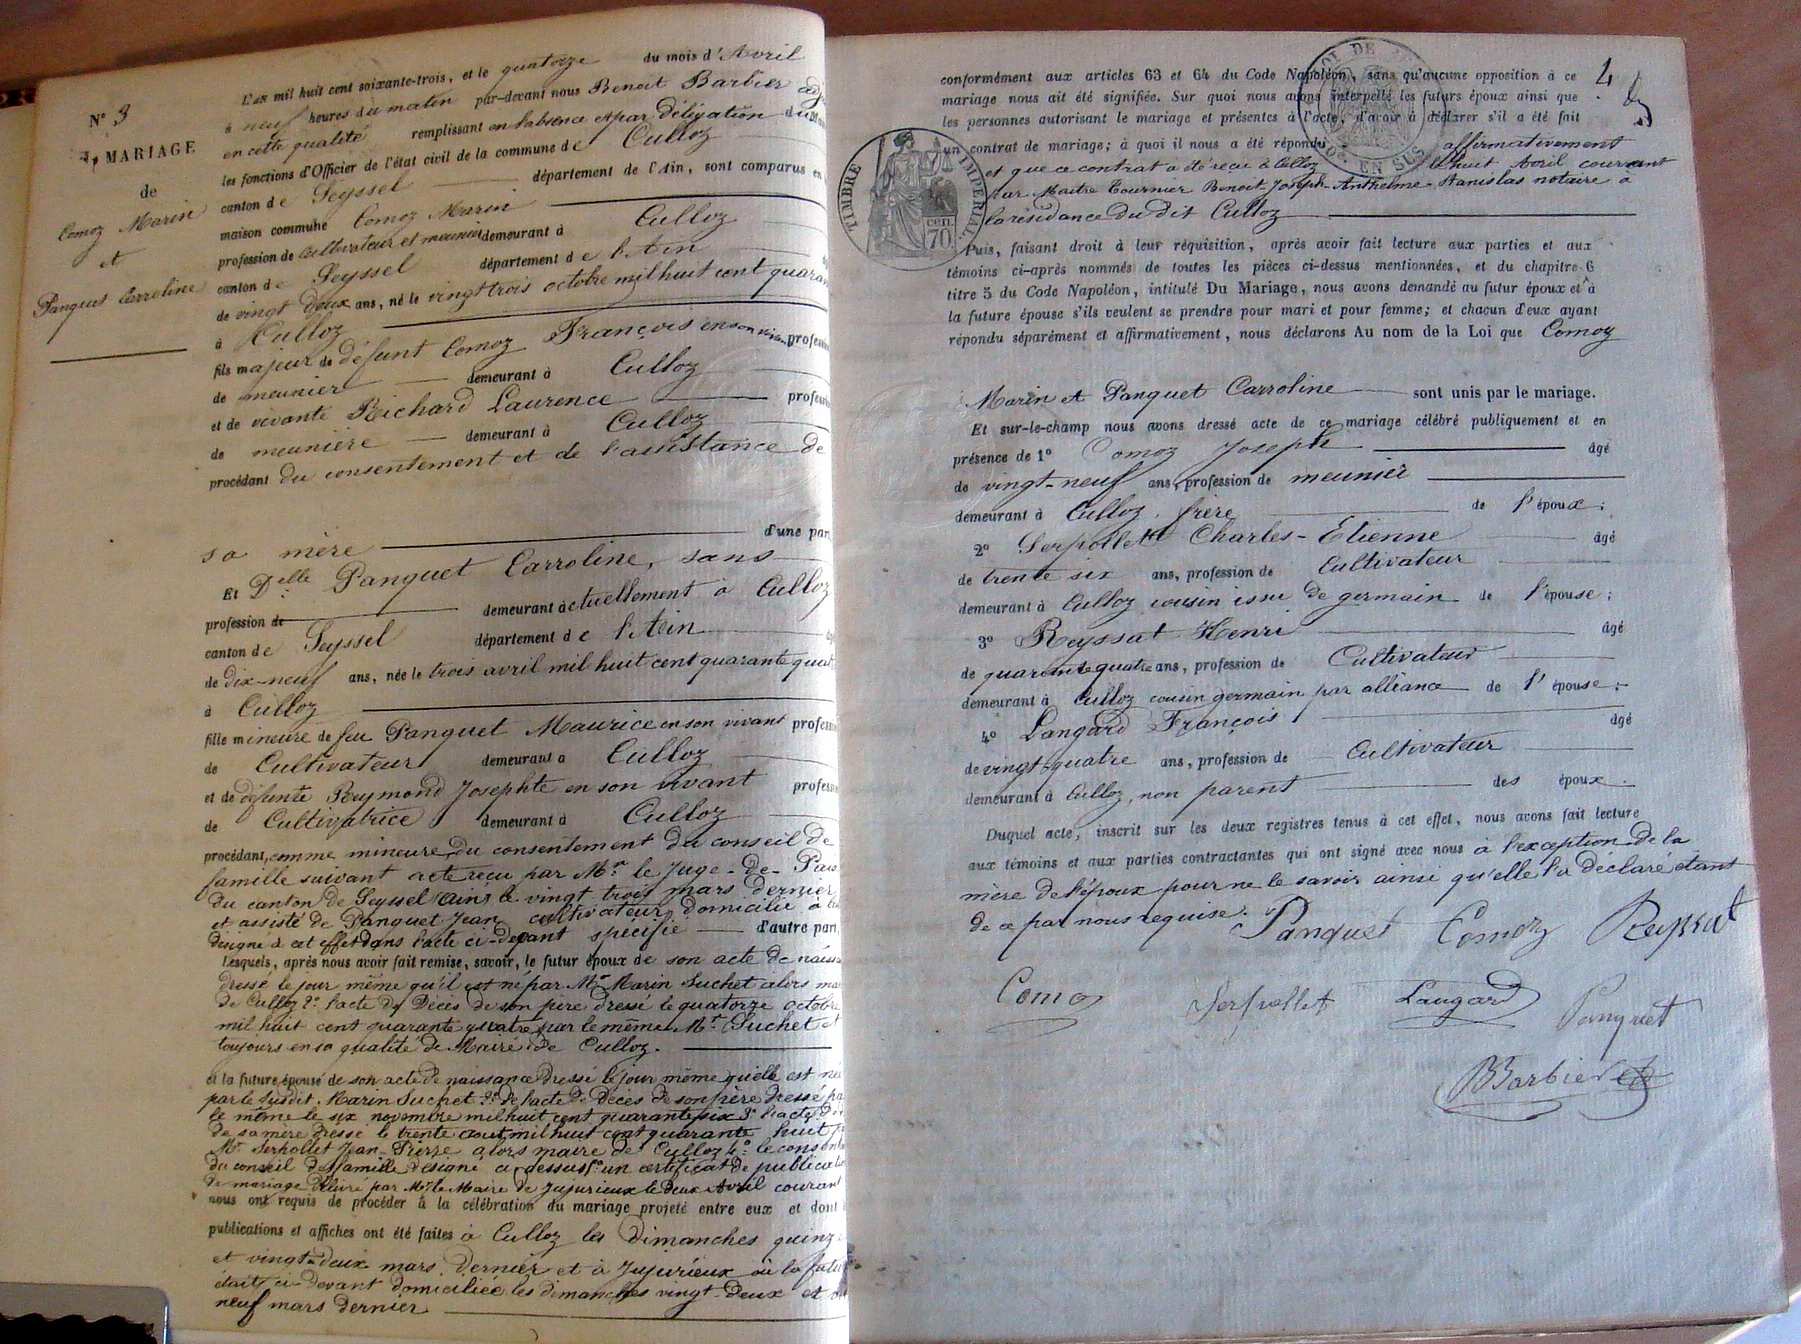 N° 3
MARIAGE
de
Comoz Marin
et
Panquet Carroline
L'an mil huit cent soixante-trois, et le quatorze du mois d'Avril
à neuf heures du matin par-devant nous Benoit Barbier
en cette qualité remplissant en l'absence et par délégation du
les fonctions d'Officier de l'état civil de la commune de Culloz
canton de Seyssel département de l'Ain, sont comparus en
maison commune Comoz Marin
profession de cultivateur et meunier demeurant à Culloz
canton de Seyssel département de l'Ain
de vingt deux ans, né le vingt trois octobre mil huit cent
à Culloz
fils majeur de défunt Comoz François en son vivant
de meunier demeurant à Culloz
et de vivante Richard Laurence
de meunière demeurant à Culloz
procédant du consentement et de l'assistance de
sa mère d'une part
Et Delle Panquet Carroline, sans
profession de demeurant actuellement à Culloz
canton de Seyssel département de l'Ain
de dix-neuf ans, née le trois avril mil huit cent quarante
à Culloz
fille mineure de feu Panquet Maurice en son vivant
de Cultivateur demeurant à Culloz
et de défunte Reymond Josephte en son vivant
de Cultivatrice demeurant à Culloz
procédant, comme mineure, du consentement du conseil de
famille suivant acte reçu par Mr le Juge-de-Paix
du canton de Seyssel (Ain) le vingt trois mars dernier
et assisté de Panquet Jean cultivateur domicilié à
désigné à cet effet dans l'acte ci-devant spécifié d'autre part.
Lesquels, après nous avoir fait remise, savoir, le futur époux de son acte de
dressé le jour même qu'il est né par Mr Marin Suchet alors
de Culloz 2° l'acte de Décès de son père dressé le quatorze octobre
mil huit cent quarante quatre par le même Mr Suchet et
toujours en sa qualité de Maire de Culloz.
et la future épouse de son acte de naissance dressé le jour même qu'elle est née
par le susdit Marin Suchet 2° de l'acte de Décès de son père dressé par
le même le six novembre mil huit cent quarante six 3° l'acte
de sa mère dressé le trente aout mil huit cent quarante huit
Mr Serpollet Jean-Pierre alors maire de Culloz 4° le
du conseil de famille désigné ci dessus 5° un certificat de
de mariage délivré par Mr le Maire de Jujurieux le deux Avril courant
nous ont requis de procéder à la célébration du mariage projeté entre eux et dont
publications et affiches ont été faites à Culloz les dimanches
et vingt-deux mars dernier et à Jujurieux où la
était ci-devant domiciliée les dimanches vingt-deux et
neuf mars dernier
conformément aux articles 63 et 64 du Code Napoléon, sans qu'aucune opposition à ce
mariage nous ait été signifiée. Sur quoi nous avons interpellé les futurs époux ainsi que
les personnes autorisant le mariage et présentes à l'acte, d'avoir à déclarer s'il a été fait
un contrat de mariage; à quoi il nous a été répondu affirmativement
et que ce contrat a été reçu à Culloz le huit Avril courant
par Maitre Tournier Benoit-Joseph-Anthelme-Stanislas notaire à
la résidance du dit Culloz
TIMBRE IMPERIAL
70 cen.
Puis, faisant droit à leur réquisition, après avoir fait lecture aux parties et aux
témoins ci-après nommés de toutes les pièces ci-dessus mentionnées, et du chapitre 6
titre 5 du Code Napoléon, intitulé Du Mariage, nous avons demandé au futur époux et à
la future épouse s'ils veulent se prendre pour mari et pour femme; et chacun d'eux ayant
répondu séparément et affirmativement, nous déclarons Au nom de la Loi que Comoz
Marin et Panquet Carroline sont unis par le mariage.
Et sur-le-champ nous avons dressé acte de ce mariage célébré publiquement et en
présence de 1° Comoz Joseph âgé
de vingt-neuf ans, profession de meunier
demeurant à Culloz, frère de l'époux;
2° Serpollet Charles-Etienne âgé
de trente six ans, profession de Cultivateur
demeurant à Culloz cousin issu de germain de l'épouse;
3° Reyssat Henri âgé
de quarante quatre ans, profession de Cultivateur
demeurant à Culloz cousin germain par alliance de l'épouse;
4° Langard François âgé
de vingt-quatre ans, profession de Cultivateur
demeurant à Culloz, non parent des époux.
Duquel acte, inscrit sur les deux registres tenus à cet effet, nous avons fait lecture
aux témoins et aux parties contractantes qui ont signé avec nous à l'exception de la
mère de l'époux pour ne le savoir ainsi qu'elle l'a déclaré étant
de ce par nous requise.
Panquet Comoz Reyssat
Comoz Serpollet Langard Panquet
BBarbier